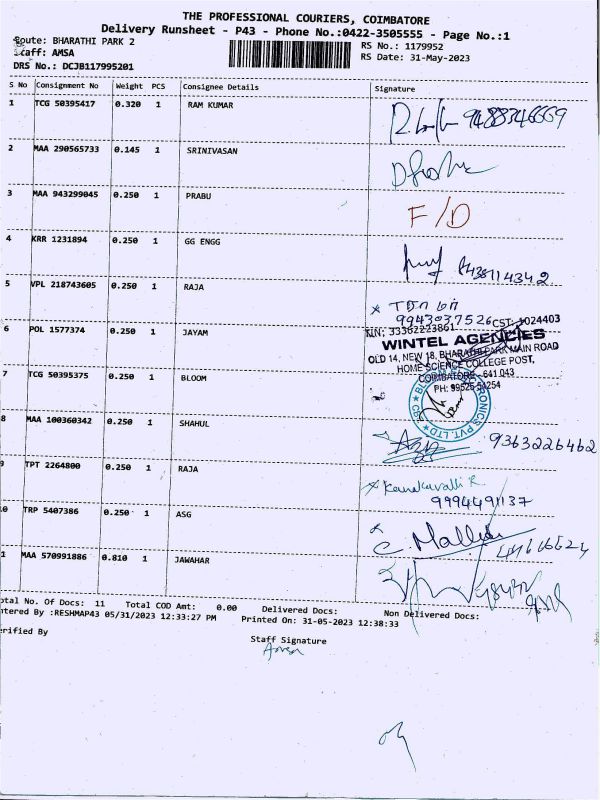 THE PROFESSIONAL COURIERS, COIMBATORE
Delivery Runsheet - P43 - Phone No.:0422-3505555 - Page No.:1
Route: BHARATHI PARK 2
Staff: AMSA
DRS No.: DCJB117995201
RS No.: 1179952
RS Date: 31-May-2023
S No Consignment No Weight PCS Consignee Details Signature
1 TCG 50395417 0.320 1 RAM KUMAR 9488346669
2 MAA 290565733 0.145 1 SRINIVASAN
3 MAA 943299045 0.250 1 PRABU F/D
4 KRR 1231894 0.250 1 GG ENGG
5 VPL 218743605 0.250 1 RAJA
9943037526
6 POL 1577374 0.250 1 JAYAM
CST: 1024403
WINTEL AGENCIES
OLD 14, NEW 18, BHARATHI PARK MAIN ROAD
HOME SCIENCE COLLEGE POST,
COIMBATORE - 641 043
7 TCG 50395375 0.250 1 BLOOM
8 MAA 100360342 0.250 1 SHAHUL 9363226462
9 TPT 2264800 0.250 1 RAJA Kanakavalli R
9994491137
0 TRP 5407386 0.250 1 ASG
1 MAA 570991886 0.810 1 JAWAHAR
otal No. Of Docs: 11 Total COD Amt: 0.00 Delivered Docs: Non Delivered Docs:
ntered By :RESHMAP43 05/31/2023 12:33:27 PM Printed On: 31-05-2023 12:38:33
erified By
Staff Signature
Amsa